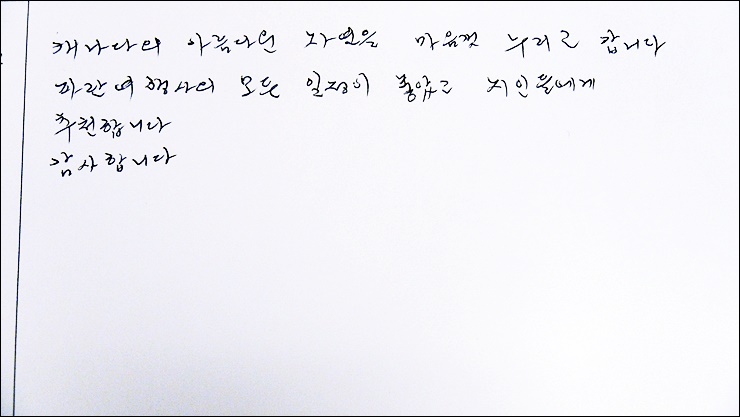 캐나다의 아름다운 자연을 마음껏 누리고 갑니다
파란여행사의 모든 일정이 좋았고 지인들에게
추천합니다
감사합니다